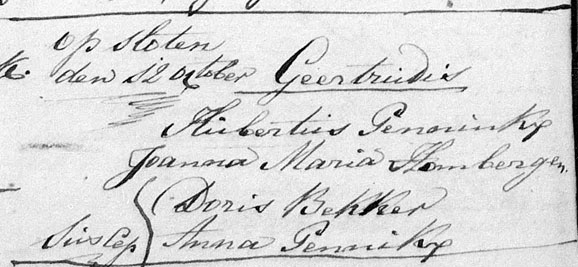 op sloten
den 12 october Geertrudis
Hubertus Penninkx
Joanna Maria Hombergen.
Doris Bekker
Suscep Anna Pennikx